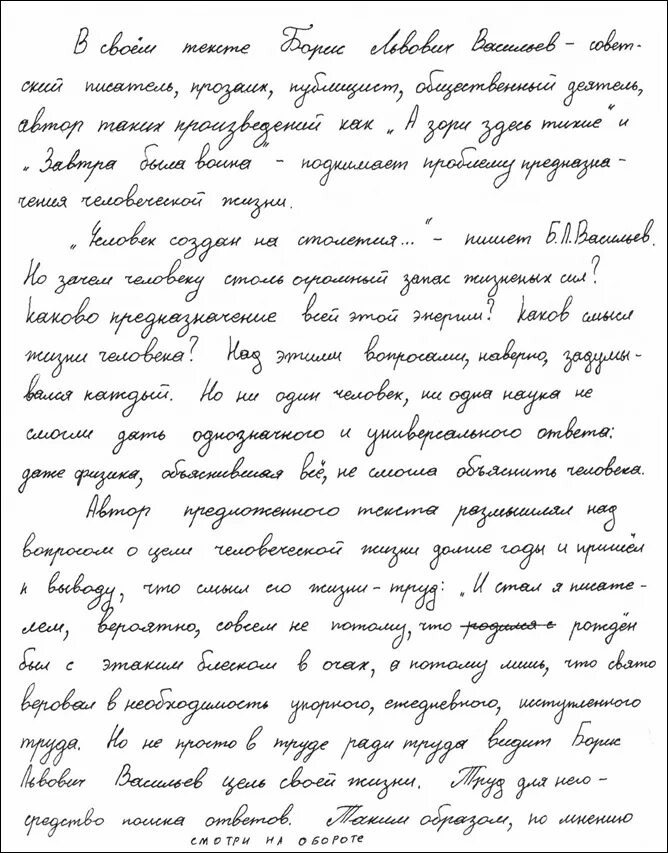 В своём тексте Борис Львович Васильев – совет-
ский писатель, прозаик, публицист, общественный деятель,
автор таких произведений как „А зори здесь тихие" и
„Завтра была война" – поднимает проблему предназна-
чения человеческой жизни.
„Человек создан на столетия..." – пишет Б.Л.Васильев.
Но зачем человеку столь огромный запас жизненых сил?
Каково предназначение всей этой энергии? Каков смысл
жизни человека? Над этими вопросами, наверно, задумы-
вался каждый. Но ни один человек, ни одна наука не
смогли дать однозначного и универсального ответа:
даже физика, объяснившая всё, не смогла объяснить человека.
Автор предложенного текста размышлял над
вопросом о цели человеческой жизни долгие годы и пришёл
к выводу, что смысл его жизни – труд: „И стал я писате-
лем, вероятно, совсем не потому, что родился с рождён
был с этаким блеском в очах, а потому лишь, что свято
веровал в необходимость упорного, ежедневного, исступленного
труда. Но не просто в труде ради труда видит Борис
Львович Васильев цель своей жизни. Труд для него –
средство поиска ответов. Таким образом, по мнению
СМОТРИ НА ОБОРОТЕ